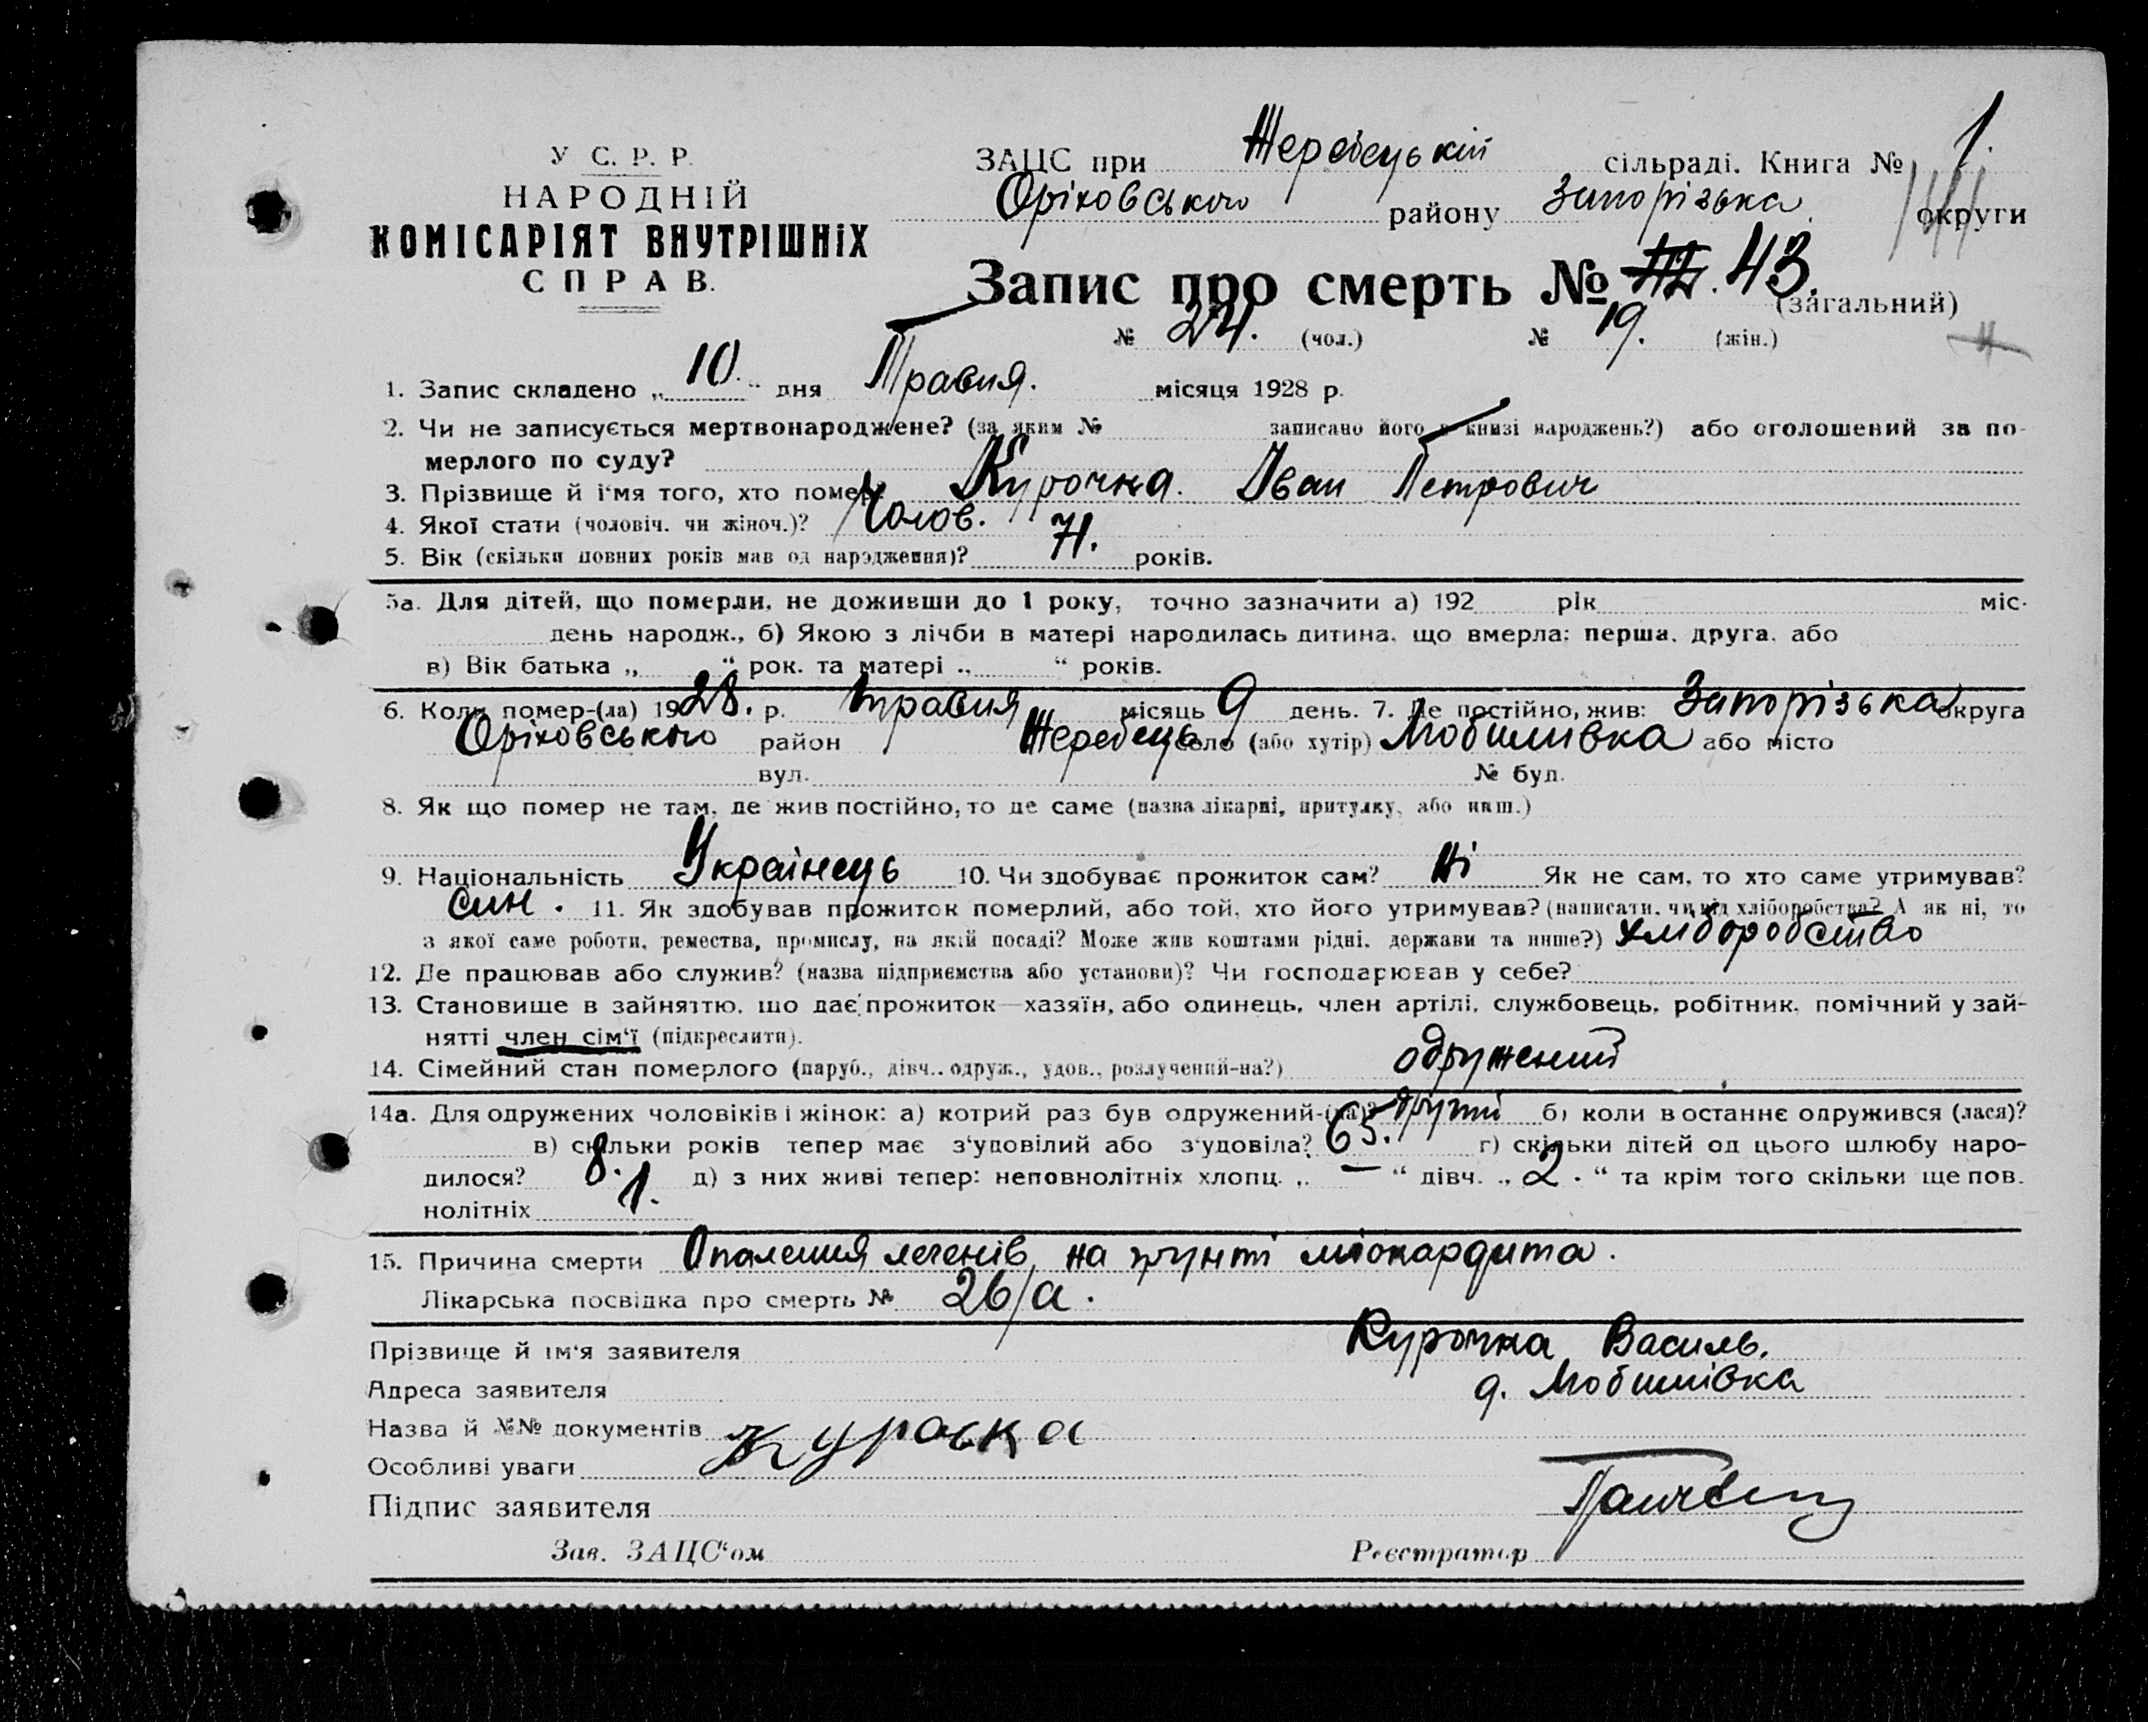 У С. Р. Р.
НАРОДНІЙ
КОМІСАРІЯТ ВНУТРІШНІХ
СПРАВ.
ЗАЦС при Жеребецькій сільраді. Книга № 1.
Оріховського района Запорізька округи
Запис про смерть № 43. (загальний)
№ 24. (чол.) № 19. (жін.)
1. Запис складено „ 10. " дня Травня. місяця 1928 р.
2. Чи не записується мертвонароджене? (за яким № записано його в книзі народжень?) або оголошений за по-
мерлого по суду?
3. Прізвище й і'мя того, хто помер? Курочка Іван Петрович
4. Якої стати (чоловіч. чи жіноч.)? Чолов.
5. Вік (скільки повних років мав од народження)? 71. років.
5а. Для дітей, що померли, не доживши до 1 року, точно зазначити а) 192 рік міс.
день народж., б) Якою з лічби в матері народилась дитина, що вмерла: перша, друга, або
в) Вік батька „ " рок. та матері „ " років.
6. Коли помер-(ла) 1928. р. травня місяць 9 день. 7. Де постійно, жив: Запорізька округа
Оріховського район Жеребець село (або хутір) або місто
вул. № буд.
8. Як що помер не там, де жив постійно, то де саме (назва лікарні, притулку, або инш.)
9. Національність Українець 10. Чи здобуває прожиток сам? Ні Як не сам, то хто саме утримував?
син. 11. Як здобував прожиток померлий, або той, хто його утримував? (написати, чи від хліборобства? А як ні, то
з якої саме роботи, ремества, промислу, на якій посаді? Може жив коштами рідні, держави та инше?) хліборобство
12. Де працював або служив? (назва підприємства або установи)? Чи господарював у себе?
13. Становище в зайняттю, що дає прожиток—хазяїн, або одинець, член артілі, службовець, робітник, помічний у зай-
нятті член сім'ї (підкреслити).
14. Сімейний стан померлого (паруб., дівч., одруж., удов., розлучений-на?) одружений
14а. Для одружених чоловіків і жінок: а) котрий раз був одружений-(на)? другий б) коли востаннє одружився (лася)?
в) скільки років тепер має з'удовілий або з'удовіла? 65. г) скільки дітей од цього шлюбу наро-
дилося? 8. д) з них живі тепер: неповнолітніх хлопц. „ — " дівч. „ 2. " та крім того скільки ще пов.
нолітніх 1.
15. Причина смерти Опалення легенів, на грунті міокардита.
Лікарська посвідка про смерть № 26/а.
Прізвище й ім'я заявителя Курочка Василь.
Адреса заявителя
Назва й №№ документів
Особливі уваги
Підпис заявителя
Зав. ЗАЦС'ом Реєстратор